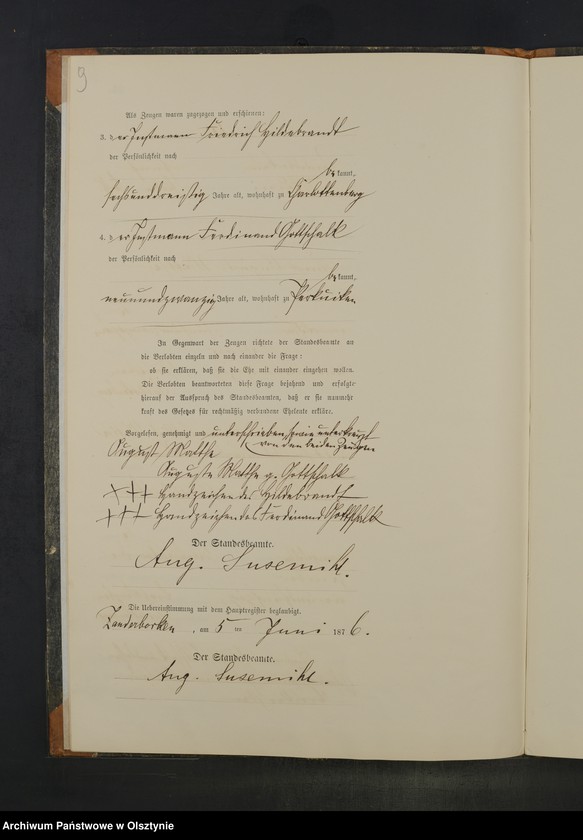 9
Als Zeugen waren zugezogen und erschienen:
3. der Instmann Friedrich Hildebrandt
der Persönlichkeit nach
be kannt,
sechsunddreißig Jahre alt, wohnhaft zu Charlottenberg
4. der Instmann Ferdinand Gottschalk
der Persönlichkeit nach
be kannt,
neunundzwanzig Jahre alt, wohnhaft zu Perkuiken
In Gegenwart der Zeugen richtete der Standesbeamte an
die Verlobten einzeln und nach einander die Frage:
ob sie erklären, daß sie die Ehe mit einander eingehen wollen.
Die Verlobten beantworteten diese Frage bejahend und erfolgte
hierauf der Ausspruch des Standesbeamten, daß er sie nunmehr
kraft des Gesetzes für rechtmäßig verbundene Eheleute erkläre.
Vorgelesen, genehmigt und unterschrieben sowie unterkreuzt
von den beiden Zeugen
August Matthe
Auguste Matthe g. Gottschalk
+++ Handzeichen des Hildebrandt
+++ Handzeichen des Ferdinand Gottschalk
Der Standesbeamte.
Aug. Susemihl.
Die Uebereinstimmung mit dem Hauptregister beglaubigt.
, am 5 ten Juni 1876.
Der Standesbeamte.
Aug. Susemihl.
Archiwum Państwowe w Olsztynie